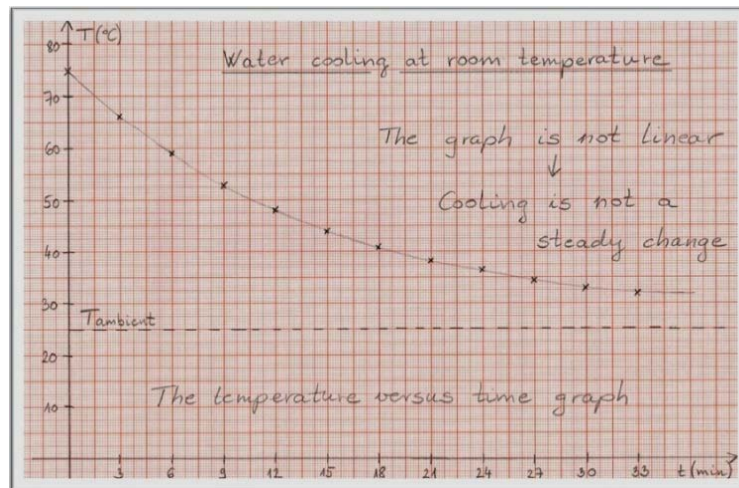 T(°C)
80
Water cooling at room temperature
70
The graph is not linear
↓
60
Cooling is not a
50
steady change
40
30
Tambient
20
The temperature versus time graph
10
3 6 9 12 15 18 21 24 27 30 33 t(min)